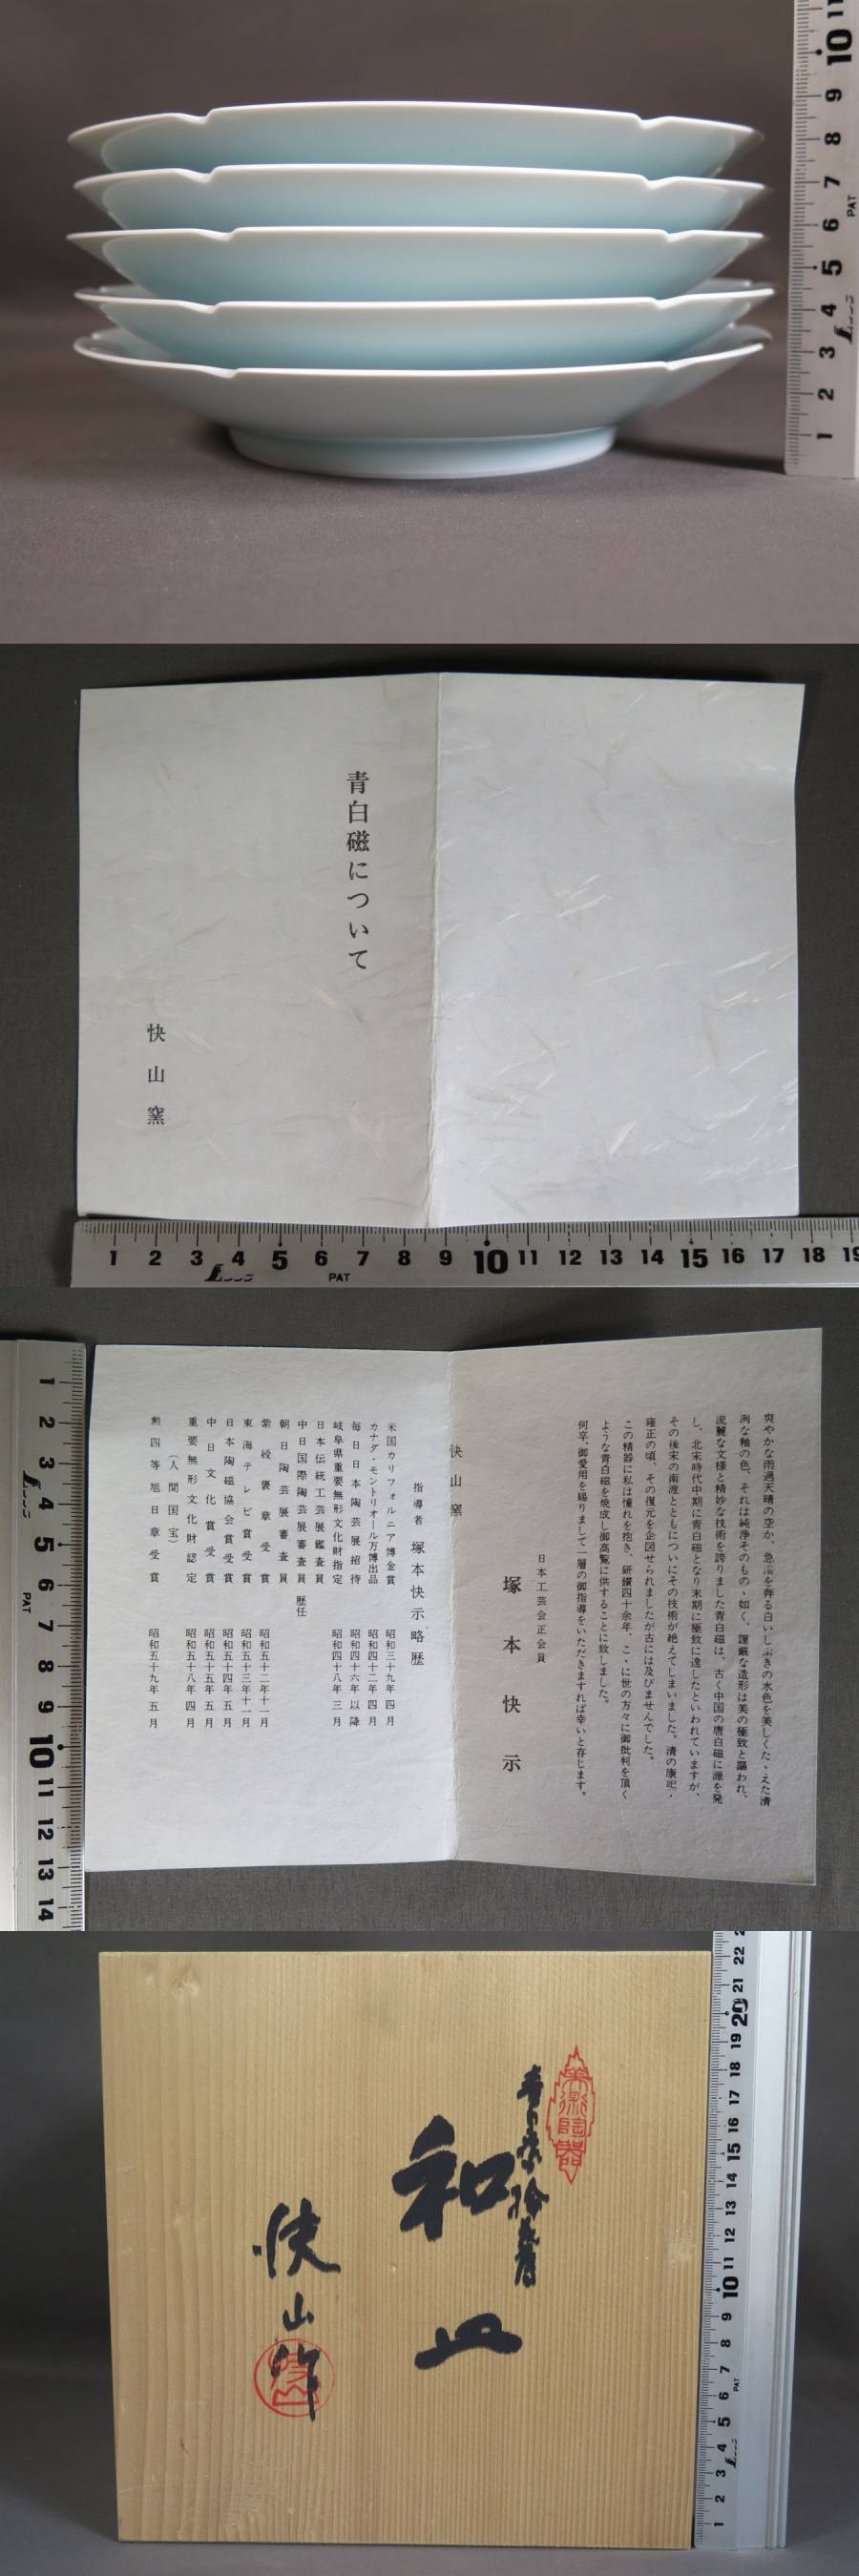 10
9
8
7
6
5
4
3
2
1
PAT
青白磁について
快山窯
1 2 3 4 5 6 7 8 9 10 11 12 13 14 15 16 17 18 19
PAT
爽やかな雨過天晴の空か、急湍を奔る白いしぶきの水色を美しくたゝえた清
冽な釉の色、それは純浄そのものゝ如く、謹厳な造形は美の極致と謳われ、
流麗な文様と精妙な技術を誇りました青白磁は、古く中国の唐白磁に源を発
し、北宋時代中期に青白磁となり末期に極致に達したといわれていますが、
その後宋の南渡とともについにその技術が絶えてしまいました。清の康熙・
雍正の頃、その復元を企図せられましたが古には及びませんでした。
この精器に私は憧れを抱き、研鑽四十余年、こゝに世の方々に御批判を頂く
ような青白磁を焼成し御高覧に供することに致しました。
何卒、御愛用を賜りまして一層の御指導をいただきますれば幸いと存じます。
日本工芸会正会員
塚本快示
快山窯
指導者 塚本快示略歴
米国カリフォルニア博金賞 昭和三十九年四月
カナダ・モントリオール万博出品 昭和四十二年四月
毎日日本陶芸展招待 昭和四十六年以降
岐阜県重要無形文化財指定 昭和四十八年三月
日本伝統工芸展鑑査員
中日国際陶芸展審査員 歴任
朝日陶芸展審査員
紫綬褒章受賞 昭和五十二年十一月
東海テレビ賞受賞 昭和五十三年十一月
日本陶磁協会賞受賞 昭和五十四年五月
中日文化賞受賞 昭和五十五年五月
重要無形文化財認定 昭和五十八年四月
（人間国宝）
勲四等旭日章受賞 昭和五十九年五月
1
2
3
4
5
6
7
8
9
10
11
12
13
14
PAT
美濃陶器
和皿
快山作
22
21
20
19
18
17
16
15
14
13
12
11
10
9
8
7
6
5
4
3
2
1
PAT